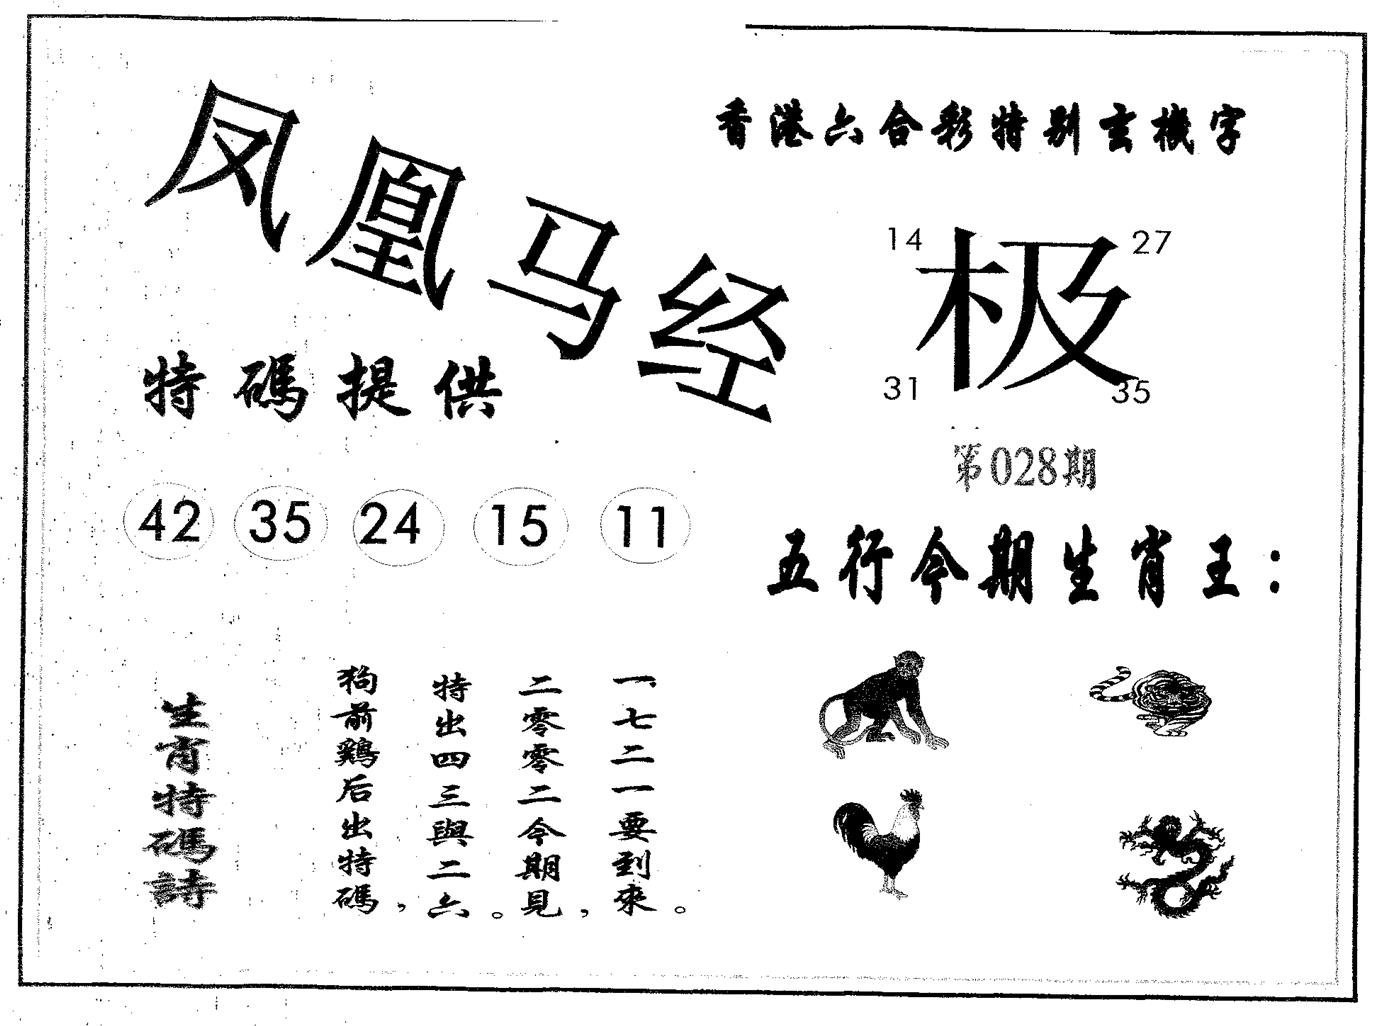 凤凰马经
香港六合彩特别玄機字
14 27
极
31 35
第028期
特碼提供
42 35 24 15 11
五行今期生肖王：
生肖特碼詩
狗前鷄后出特碼，
特出四三與二六。
二零零二今期見，
一七二一要到來。